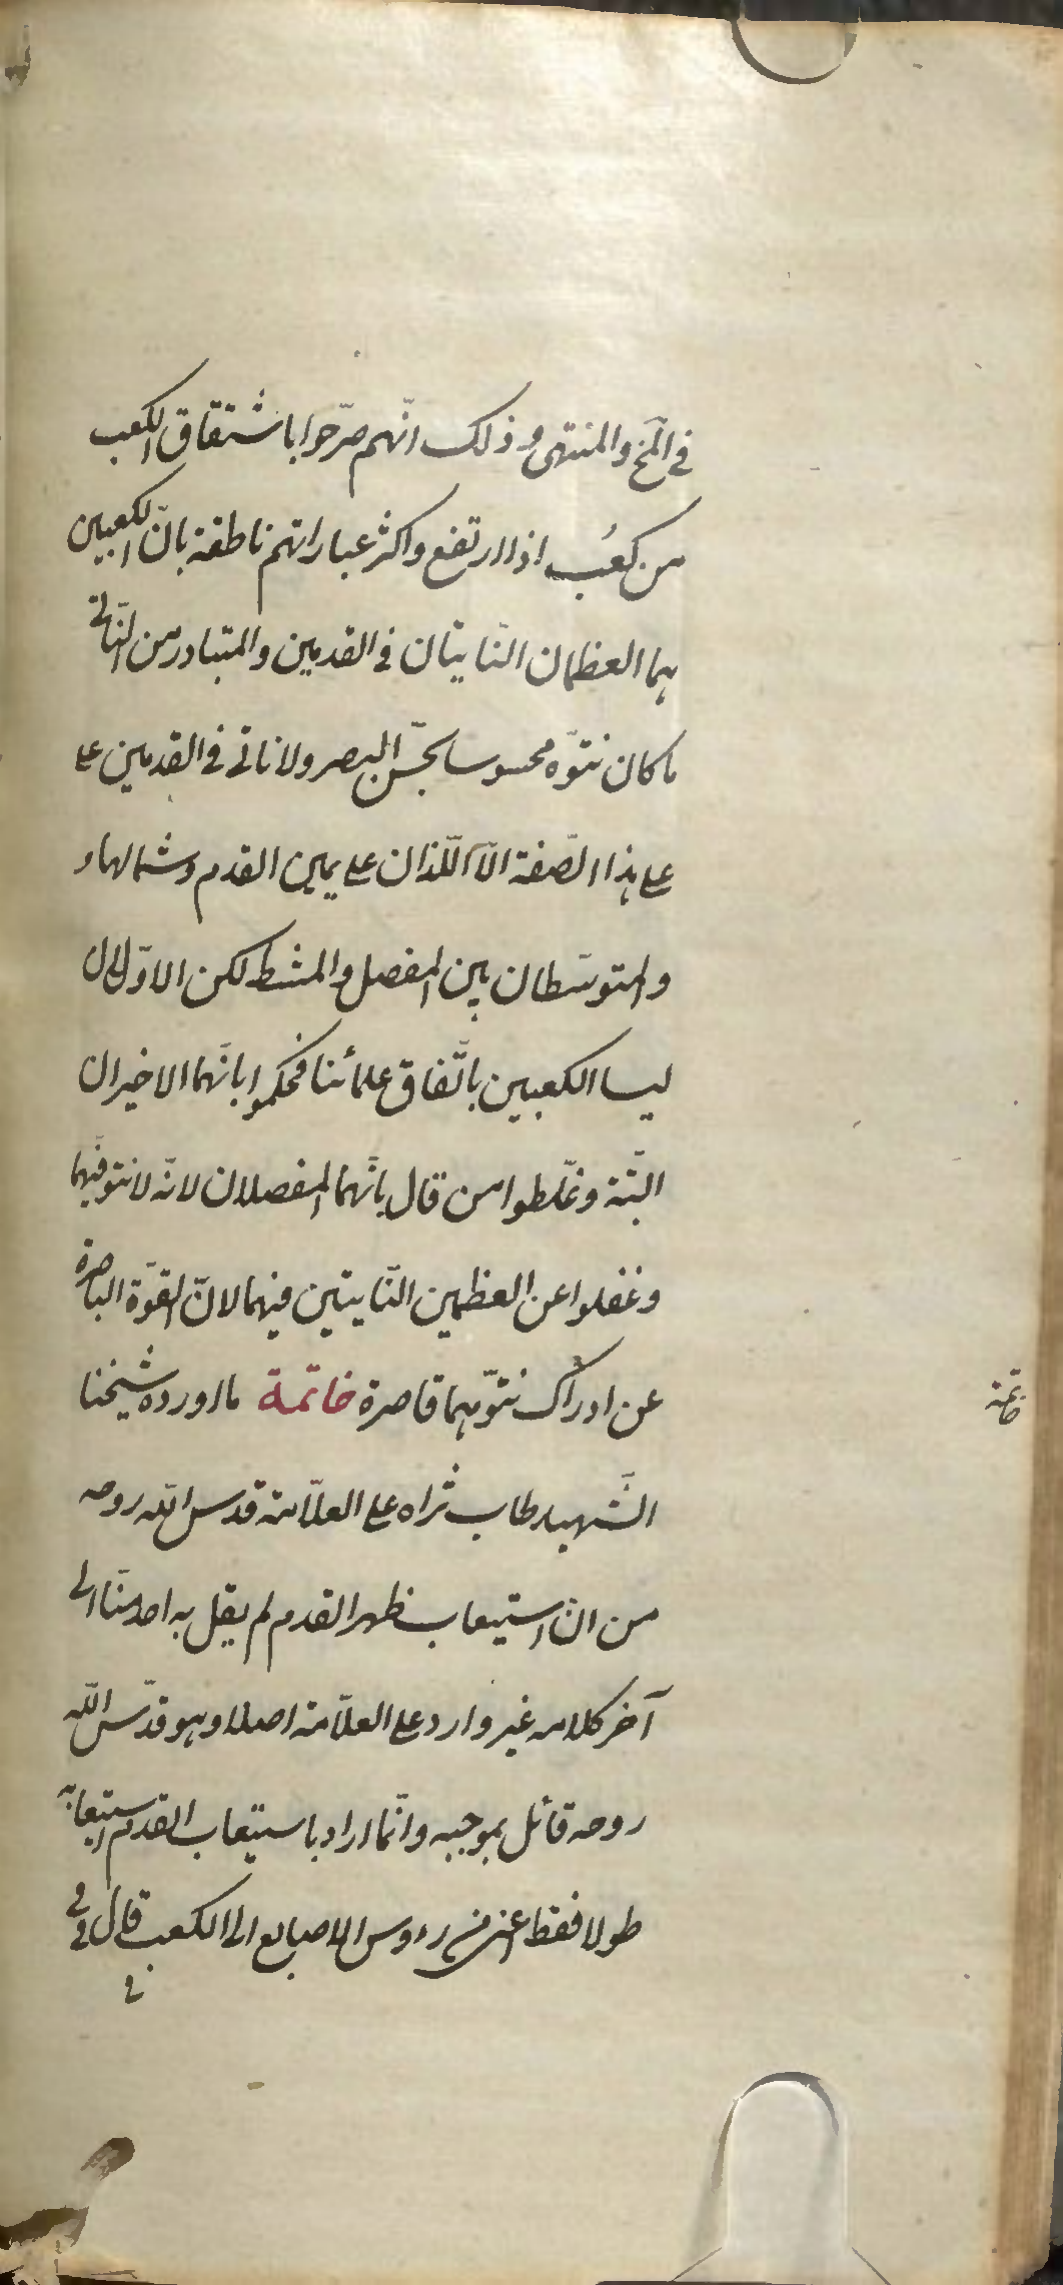 في المخ والمنتهى وذلك انّهم صرّحوا باشتقاق الكعب
من كعُب اذا ارتفع واكثر عباراتهم ناطقة بانّ الكعبين
هما العظمان النّاتيان في القدمين والمتبادر من النّاتي
ما كان نتوّه محسوسا بحسّ البصر ولا ناتى في القدمين على
على هذا الصّفة الّا اللّذان على يمين القدم وشمالها و
والمتوسّطان بين المفصل والمشط لكن الاوّلان
ليسا الكعبين باتّفاق علمائنا فحكموا بانّهما الاخيران
البتّة وغلّطوا من قال بانّهما المفصلان لانّه لا نتو فيهما
وغفلوا عن العظمين النّاتيين فيهما لانّ القوّة الباصرة
عن ادراك نتوّهما قاصرة خاتمة ما اورده شيخنا
خاتمة
الشّهيد طاب ثراه على العلّامة قدس اللّه روحه
من ان استيعاب ظهر القدم لم يقل به احد منّا الى
آخر كلامه غير وارد على العلّامة اصلا وهو قدّس اللّه
روحه قائل بموجبه وانّما اراد باستيعاب القدم استيعابه
طولا فقط اعنى من رءوس الاصابع الى الكعب قال في
في